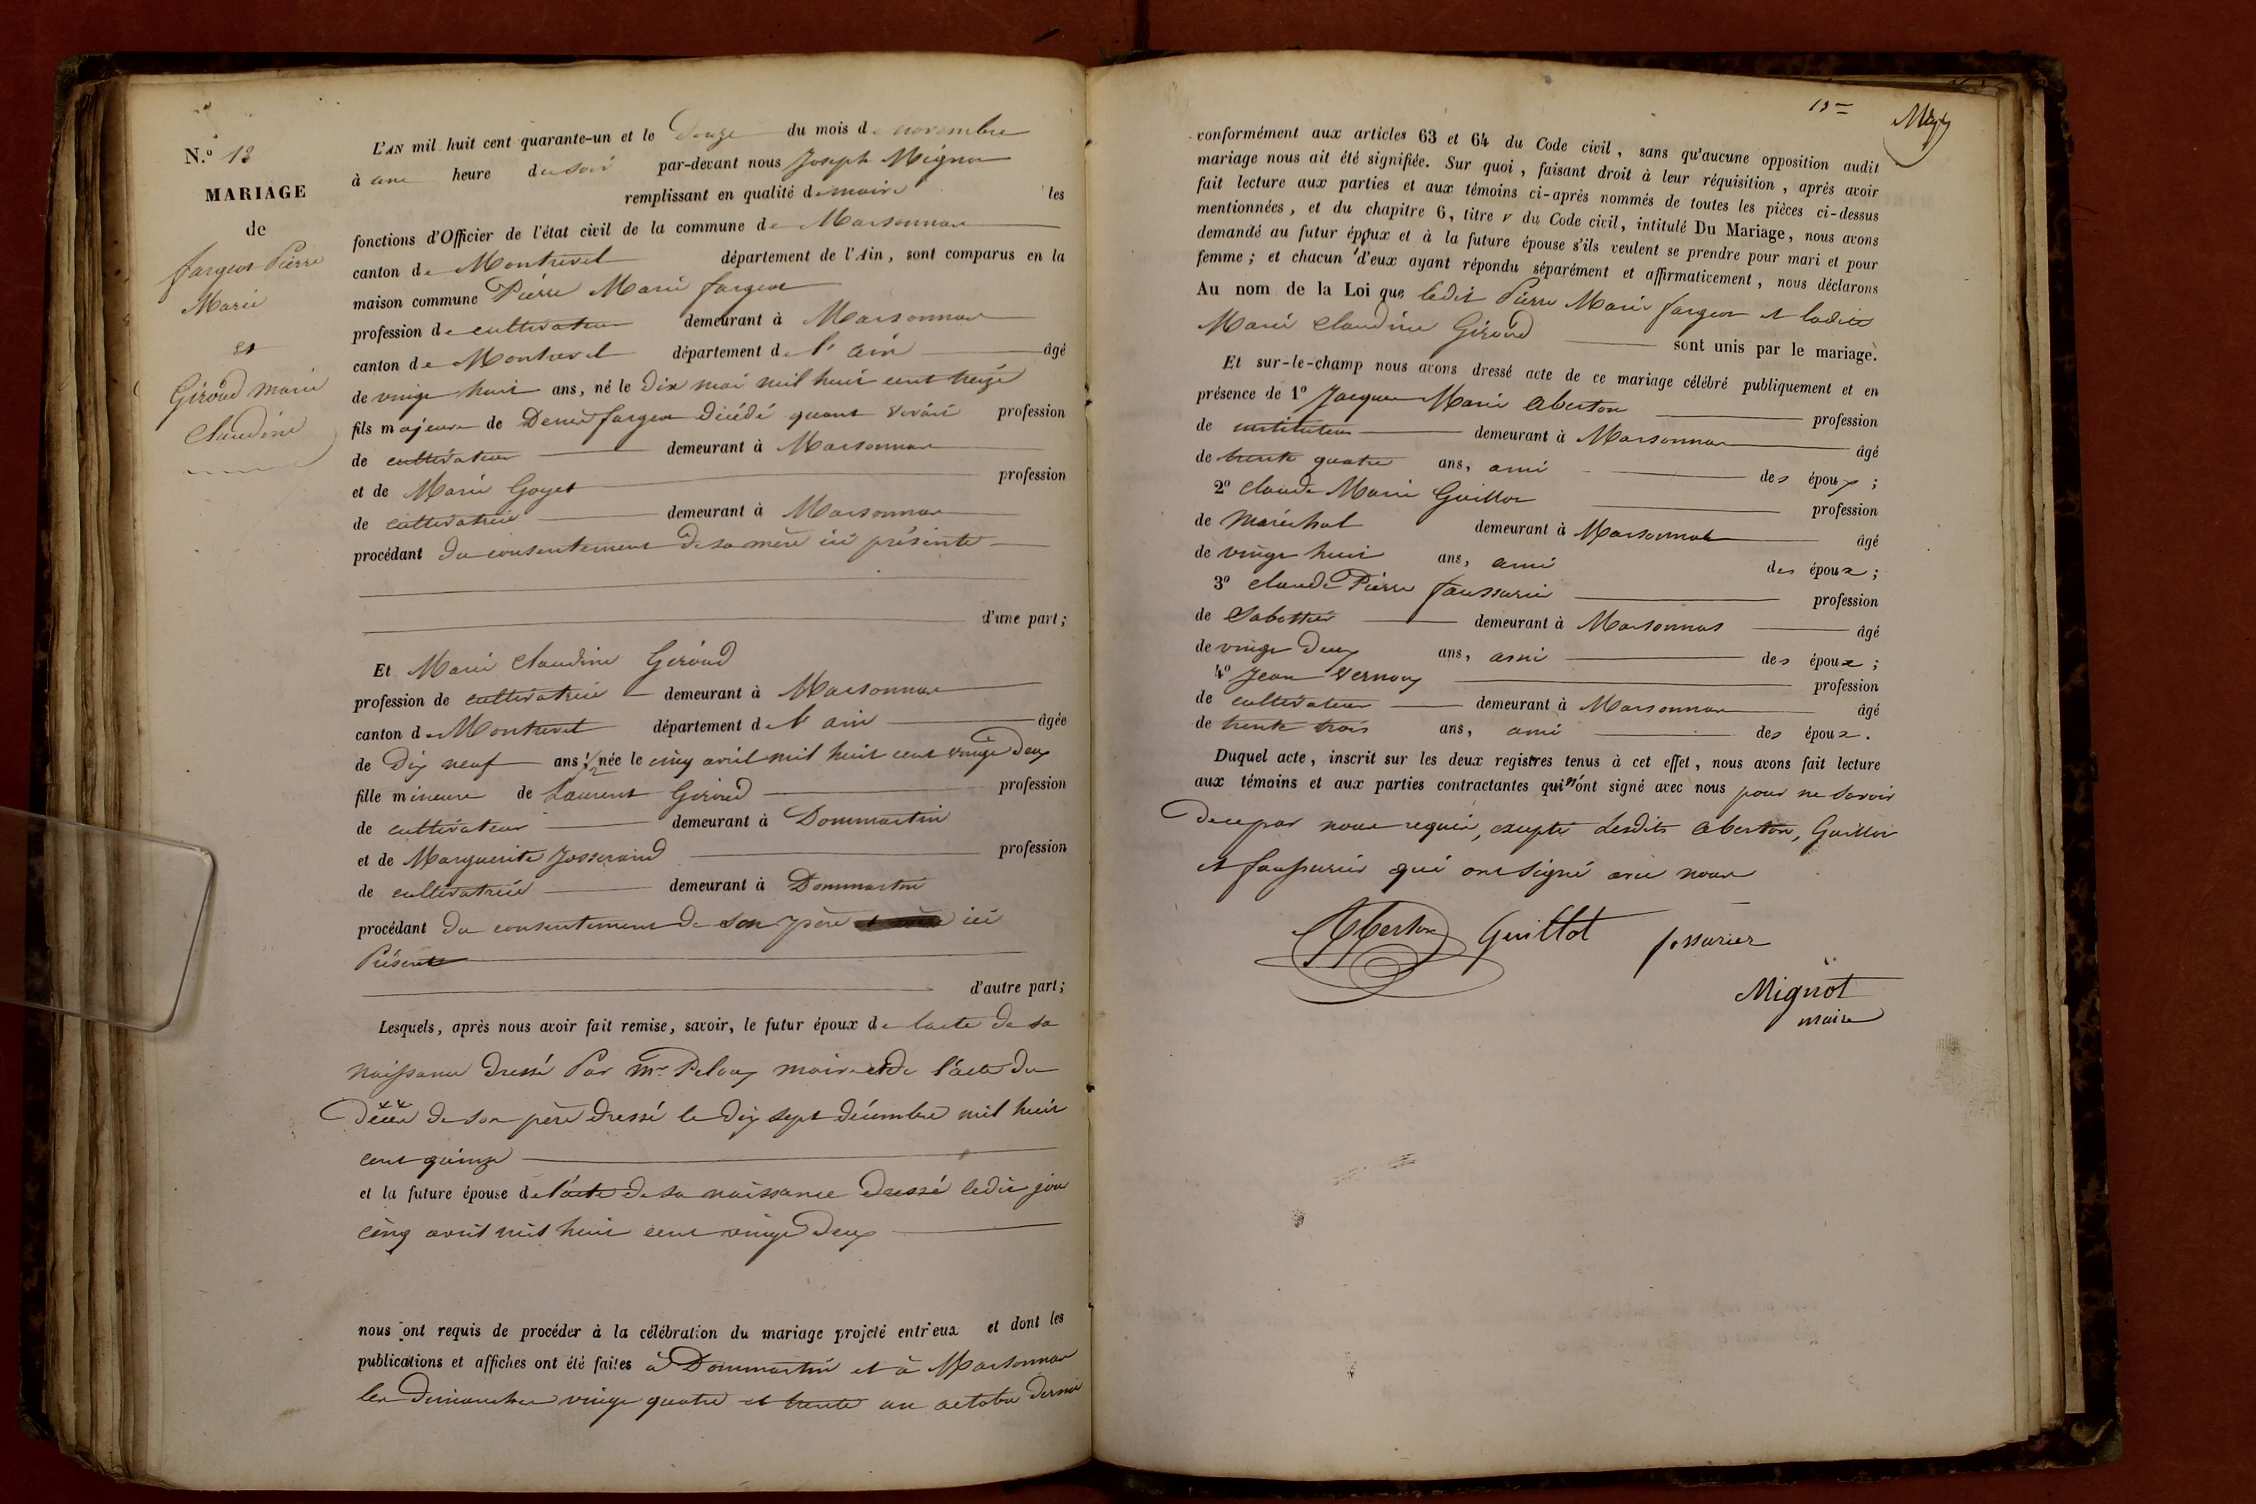 N.º 13
MARIAGE
de
fargeot Pierre
Marie
et
Giroud Marie
Claudine
L'AN mil huit cent quarante-un et le Douze du mois de novembre
à une heure du soir par-devant nous Joseph Mignot
remplissant en qualité de maire les
fonctions d'Officier de l'état civil de la commune de Marsonnas
canton de Montrevel département de l'Ain, sont comparus en la
maison commune Pierre Marie fargeot
profession de cultivateur demeurant à Marsonnas
canton de Montrevel département de l'ain âgé
de vingt huit ans, né le dix mai mil huit cent treize
fils majeur de Denis fargeot Décédé quant vivait profession
de cultivateur demeurant à Marsonnas
et de Marie Goyet profession
de cultivatrice demeurant à Marsonnas
procédant du consentement de sa mère ici présente
d'une part;
Et Marie Claudine Giroud
profession de cultivatrice demeurant à Marsonnas
canton de Montrevel département de l'ain âgée
de Dix neuf ans 1/2 née le cinq avril mil huit cent vingt Deux
fille mineure de Laurent Giroud profession
de cultivateur demeurant à Dommartin
et de Marguerite Josserand profession
de cultivatrice demeurant à Dommartin
procédant du consentement de son père ici
Présent
d'autre part;
Lesquels, après nous avoir fait remise, savoir, le futur époux de lacte de sa
naissance dressé Par mr Peloux maire et de l'acte du
Décès de son père dressé le dix sept décembre mil huit
cent quinze
et la future épouse de l'acte de sa naissance dressé ledit jour
cinq avril mil huit cent vingt Deux
nous ont requis de procéder à la célébration du mariage projeté entr'eux et dont les
publications et affiches ont été faites à Dommartin et à Marsonnas
les dimanches vingt quatre et trente un octobre dernier
13
conformément aux articles 63 et 64 du Code civil, sans qu'aucune opposition audit
mariage nous ait été signifiée. Sur quoi, faisant droit à leur réquisition, après avoir
fait lecture aux parties et aux témoins ci-après nommés de toutes les pièces ci-dessus
mentionnées, et du chapitre 6, titre v du Code civil, intitulé Du Mariage, nous avons
demandé au futur époux et à la future épouse s'ils veulent se prendre pour mari et pour
femme; et chacun d'eux ayant répondu séparément et affirmativement, nous déclarons
Au nom de la Loi que ledit Pierre Marie fargeot et ladite
Marie Claudine Giroud sont unis par le mariage.
Et sur-le-champ nous avons dressé acte de ce mariage célébré publiquement et en
présence de 1º Jacques Marie Aberton profession
de instituteur demeurant à Marsonnas âgé
de trente quatre ans, ami des époux;
2º Claude Marie Guillot profession
de Maréchal demeurant à Marsonnas âgé
de vingt huit ans, ami des époux;
3º Claude Pierre faussurier profession
de Sabottier demeurant à Marsonnas âgé
de vingt Deux ans, ami des époux;
4º Jean Vernoux profession
de cultivateur demeurant à Marsonnas âgé
de trente trois ans, ami des époux.
Duquel acte, inscrit sur les deux registres tenus à cet effet, nous avons fait lecture
aux témoins et aux parties contractantes qui n'ont signé avec nous pour ne savoir
De ce par nous requis, excepté Lesdits Aberton, Guillot
et faussurier qui ont signé avec nous
Aberton Guillot fossurier
Mignot
maire